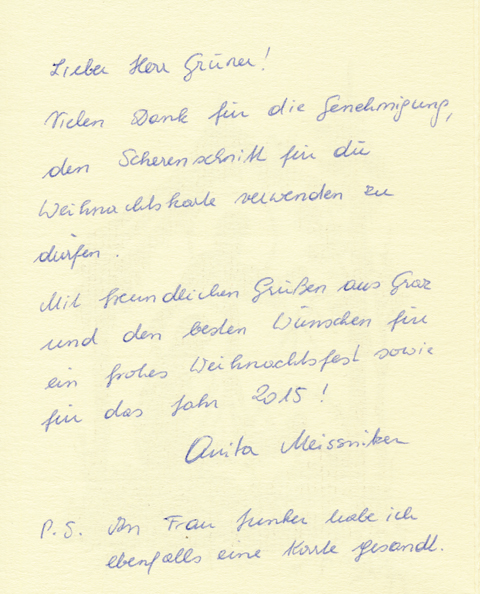 Lieber Herr Grüner!
Vielen Dank für die Genehmigung,
den Scherenschnitt für die
Weihnachtskarte verwenden zu
dürfen.
Mit freundlichen Grüßen aus Graz
und den besten Wünschen für
ein frohes Weihnachtsfest sowie
für das Jahr 2015!
Anita Meissniker
P.S. An Frau Junker habe ich
ebenfalls eine Karte gesandt.